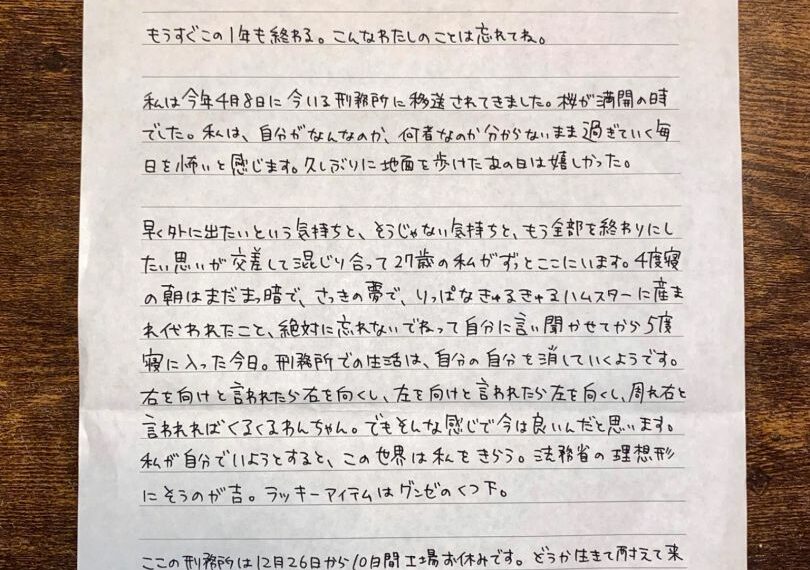 もうすぐこの1年も終わる。こんなわたしのことは忘れてね。
私は今年4月8日に今いる刑務所に移送されてきました。桜が満開の時
でした。私は、自分がなんなのか、何者なのか分からないまま過ぎていく毎
日を怖いと感じます。久しぶりに地面を歩けたあの日は嬉しかった。
早く外に出たいという気持ちと、そうじゃない気持ちと、もう全部を終わりにし
たい思いが交差して混じり合って27歳の私がずっとここにいます。4度寝
の朝はまだまっ暗で、さっきの夢で、りっぱなきゅるきゅるハムスターに産ま
れ代われたこと、絶対に忘れないでねって自分に言い聞かせてから5度
寝に入った今日。刑務所での生活は、自分の自分を消していくようです。
右を向けと言われたら右を向くし、左を向けと言われたら左を向くし、周れ右と
言われればくるくるわんちゃん。でもそんな感じで今は良いんだと思います。
私が自分でいようとすると、この世界は私をきらう。法務省の理想形
にそうのが吉。ラッキーアイテムはグンゼのくつ下。
ここの刑務所は12月26日から10日間工場お休みです。どうか生きて耐えて来